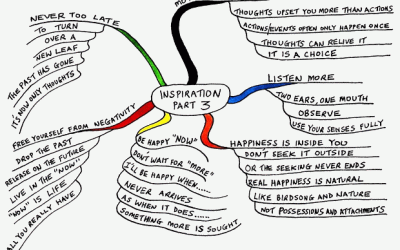 THOUGHTS UPSET YOU MORE THAN ACTIONS
ACTIONS/EVENTS OFTEN ONLY HAPPEN ONCE
THOUGHTS CAN RELIVE IT
IT IS A CHOICE
NEVER TOO LATE
TO TURN
OVER A
NEW LEAF
THE PAST HAS GONE
IT'S NOW ONLY THOUGHTS
INSPIRATION
PART 3
LISTEN MORE
TWO EARS, ONE MOUTH
OBSERVE
USE YOUR SENSES FULLY
FREE YOURSELF FROM NEGATIVITY
DROP THE PAST
RELEASE ON THE FUTURE
LIVE IN THE "NOW"
"NOW" IS LIFE
ALL YOU REALLY HAVE
BE HAPPY "NOW"
DON'T WAIT FOR "MORE"
I'LL BE HAPPY WHEN.....
NEVER ARRIVES
AS WHEN IT DOES.....
SOMETHING MORE IS SOUGHT
HAPPINESS IS INSIDE YOU
DON'T SEEK IT OUTSIDE
OR THE SEEKING NEVER ENDS
REAL HAPPINESS IS NATURAL
LIKE BIRDSONG AND NATURE
NOT POSSESSIONS AND ATTACHMENTS